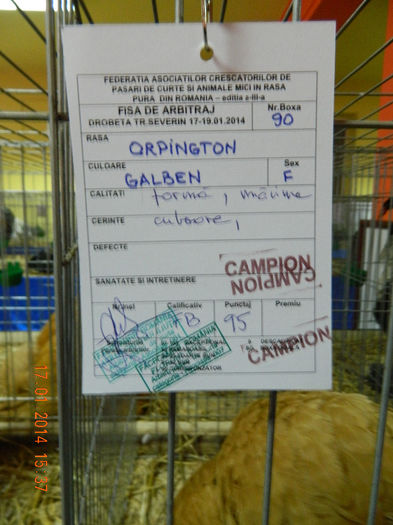 FEDERATIA ASOCIATIILOR CRESCATORILOR DE
PASARI DE CURTE SI ANIMALE MICI IN RASA
PURA DIN ROMANIA – editia a-III-a
FISA DE ARBITRAJ
Nr.Boxa
DROBETA TR.SEVERIN 17-19.01.2014
90
RASA
ORPINGTON
CULOARE
Sex
GALBEN
F
CALITATI
formă, mărime
CERINTE
culoare,
DEFECTE
SANATATE SI INTRETINERE
CAMPION
CAMPION
Calificativ
Punctaj
Premiu
FB
95
CAMPION
17 01 2014 15:37